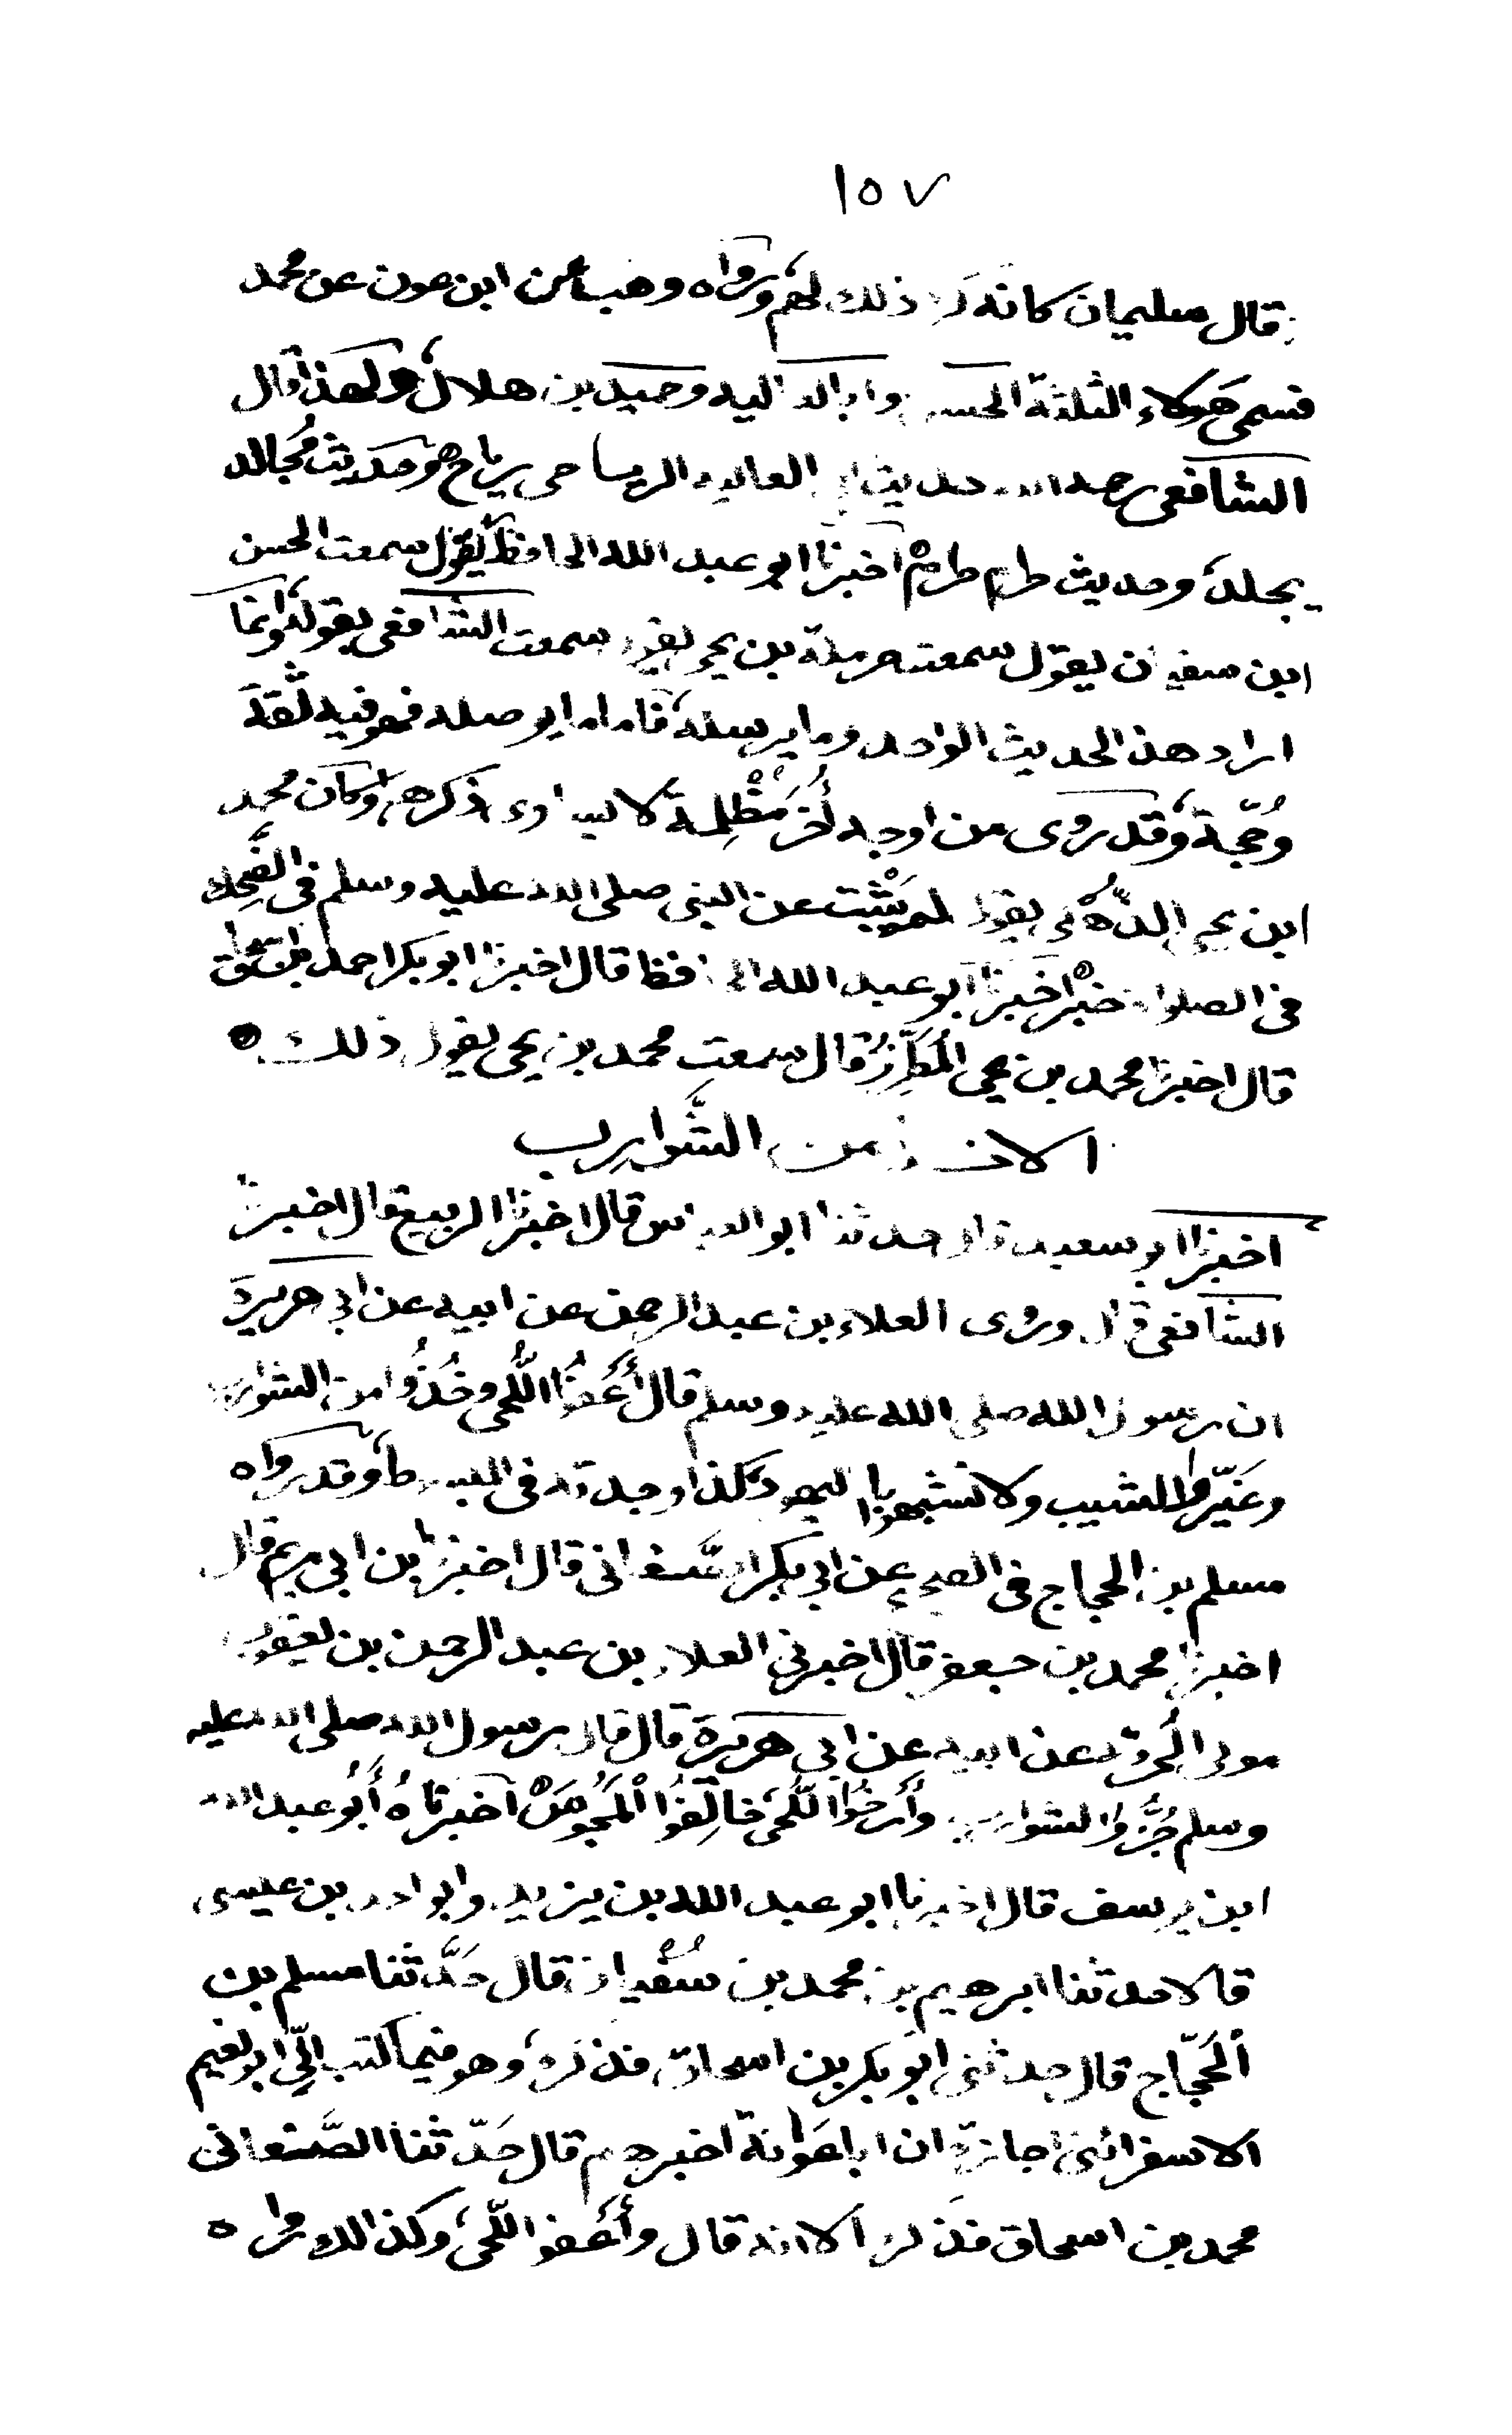 ١٥٧
قال سليمان كانه كره ذلك لهم ورواه وهب عن ابن عون عن محمد
فسمى هولاء الثلثة الحسن وابا العاليه وحميد بن هلال ولهذا قال
الشافعى رحمه الله حديث ابى العاليه الرياحى رياح وحديث مجالد
يجلد وحديث حرام حرام اخبرنا ابو عبد الله الحافظ يقول سمعت الحسن
ابن سفيان يقول سمعت حرملة بن يحيى يقول سمعت الشافعى يقوله وانما
اراد هذا الحديث الواحد وما يرسله فاما ما يوصله فهو فيه ثقة
وحُجّة وقد روى من اوجه أُخَر مُظْلِمة ذكرها وكان محمد
ابن يحيى الذُّهْلى يقول لم يَثْبت عن النبى صلى الله عليه وسلم فى الضَّحِك
فى الصلواة خبرٌ اخبرنا ابو عبد الله الحافظ قال اخبرنا ابو بكر احمد بن اسحاق
قال اخبرنا محمد بن يحيى قال سمعت محمد بن يحيى يقول ذلك
الاخذ من الشَّوارب
اخبرنا ابو سعيد قال حدثنا ابو العباس قال اخبرنا الربيع قال اخبرنا
الشافعى قال وروى العلاء بن عبد الرحمن عن ابيه عن ابى هريرة
ان رسول الله صلى الله عليه وسلم قال أعْفُوا اللُّحى وخُذُوا من الشوارب
وغَيّروا الشيب ولا تشبهوا باليهود كذا وجدته فى المبسوط وقد رواه
مسلم بن الحجاج فى الصحيح عن ابى بكر الصَّنعانى قال اخبرنا بن ابى مريم قال
اخبرنا محمد بن جعفر قال اخبرنى العلاء بن عبد الرحمن بن يعقوب
مولى الحُرقة عن ابيه عن ابى هريرة قال قال رسول الله صلى الله عليه
وسلم جُزُّوا الشوارب وأَرْخُوا اللُّحى خالِفُوا الْمَجُوسَ اخبرناهُ أَبُو عبد الله
ابن يوسف قال اخبرنا ابو عبد الله بن يزيد وابو احمد بن عيسى
قالا حدثنا ابرهيم بن محمد بن سُفْيان قال حَدَّثنا مسلم بن
الحَجّاج قال حدثنى ابو بكر بن اسحاق فذكره وهو فيما كتب الىّ ابو نعيم
الاسفرائنى اجازة ان ابا عَوانة اخبرهم قال حَدّثنا الصَّنعانى
محمد بن اسحاق فذكره الا انه قال وأَعْفوا اللّحى وكذالك رواه